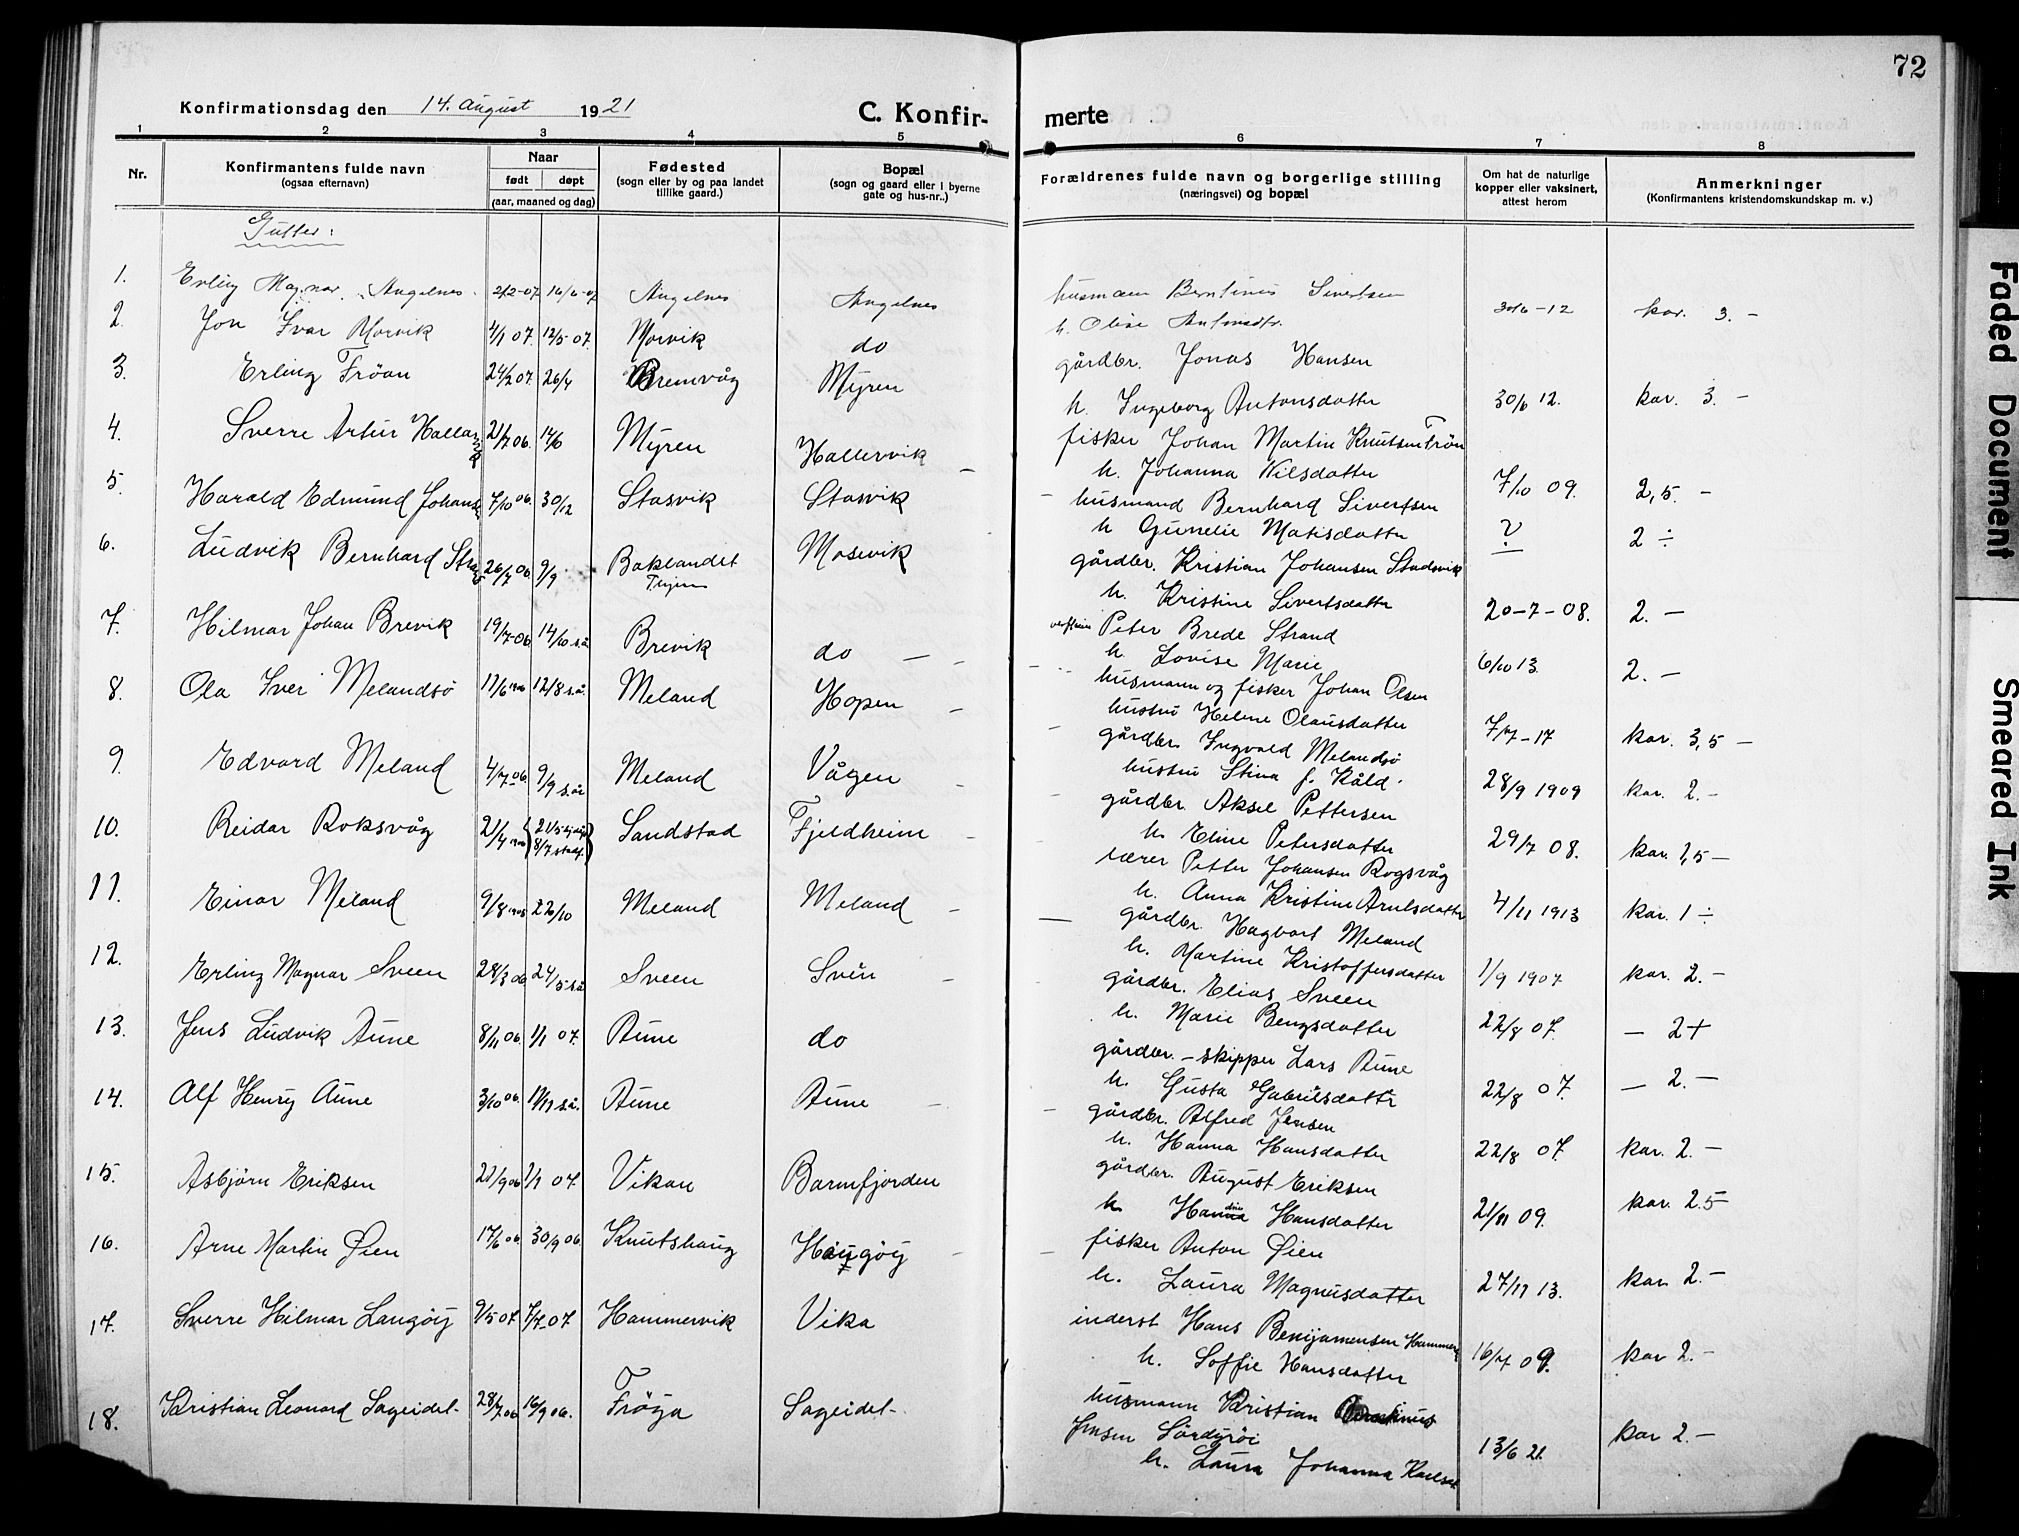 72
Konfirmationsdag den 14. August 1921
C. Konfir-
merte
1 2 3 4 5 6 7 8
Nr.
Konfirmantens fulde navn
(ogsaa efternavn)
Naar
født døpt
(aar, maaned og dag)
Fødested
(sogn eller by og paa landet
tillike gaard.)
Bopæl
(sogn og gaard eller i byerne
gate og hus-nr..)
Forældrenes fulde navn og borgerlige stilling
(næringsvei) og bopæl
Om hat de naturlige
kopper eller vaksinert,
attest herom
Anmerkninger
(Konfirmantens kristendomskundskap m. v.)
Gutter:
1. Erling Magnar Angelnes 2/2-07 16/6-07 Angelnes Angelnes
husmann Berntinus Sivertsen
h. Oline Antonsdtr.
30/6-12 kar. 3. -
2. Jon Ivar Morvik 4/1 07. 12/5-07. Morvik do
gårdbr. Jonas Hansen
h. Ingeborg Antonsdatter
30/6 12. kar. 3. -
3. Erling Fröan 24/2 07. 26/4 Bremvåg Myren
fisker Johan Martin Knutsen Frön
h. Johanna Nilsdatter
7/10 09. 2,5. -
4. Sverre Artur Hallar 2/7 06. 14/6 Myren Hallervik
husmand Bernhard Sivertsen
h Gunelie Matisdatter
? 2 ÷
5. Harald Edmund Johans 7/10 06. 30/12 Stasvik Stasvik
gårdbr. Kristian Johansen Stadsvik
h. Kristine Sivertsdatter
20-7-08. 2. -
6. Ludvik Bernhard 26/7 06. 9/9 Baklandet Mosevik
Peter Brede Strand
h Lovise Marie
6/10 13 2. -
7. Hilmar Johan Brevik 19/7-06 14/10 s.å Brevik do -
husmann og fisker Johan Olsen
hustru Helene Olausdatter
7/7-17 kar. 3,5 -
8. Ola Iver Melandsö 17/6 1906 12/8 s.å. Meland Hopen
gårdbr. Ingvald Melandsö
hustru Stina f. Kåld.
28/9 1909 kar. 2. -
9. Edvard Meland 4/7-06 9/9 s.år Meland Vågen
gårdbr. Aksel Pettersen
h. Eline Petersdatter
29/7 08. kar. 1,5 -
10. Reidar Roksvåg 21/4 1906 Sandstad Fjeldheim
lærer Petter Johansen Rogsvåg
h. Anna Kristine Arntsdatter
4/11 1913 kar. 1 ÷
11. Einar Meland 9/8 1906 22/10 Meland Meland
gårdbr. Hagbart Meland
h. Martine Kristoffersdatter
1/9 1907 kar. 2. -
12. Erling Magnar Sveen 28/3 06 24/5-s.å Sveen Svén
gårdbr. Elias Sveen
h. Marie Bengsdatter
22/8 07. - 2+
13. Jens Ludvik Aune 8/11 06. 1/1 07. Aune do
gårdbr. - skipper Lars Aune
h. Gusta Gabrielsdattr
22/8 07. - 2. -
14. Alf Henry Aune 3/10 06. 11/11 s.å. Aune Aune
gårdbr. Alfred Jensen
h. Hanna Hansdatter
22/8 07. kar. 2. -
15. Asbjørn Eriksen 21/9 06 1/1 07. Vikan Barmfjorden
gårdbr. August Eriksen
h Hanna Hansdatter
21/11 09. kar. 2.5
16. Arne Martin Øien 17/6 06. 30/9 06. Knutshaug Haugöy
fisker Anton Øien
h. Laura Magnusdatter
27/11 13. kar. 2. -
17. Sverre Hilmar Langöy 9/5 07. 7/7-07 Hammervik Vika
inderst Hans Benjamensen Hammerv
h. Soffie Hansdatter
16/7 09. kar 2. -
18. Kristian Leonard Sageidet. 28/7 06 16/9 06. Fröya Sageidet-
husmann Kristian
Jensen Sördyröi
h. Laura Johanna Karlsd
13/6 21. kar 2. -
Faded Document
Smeared Ink